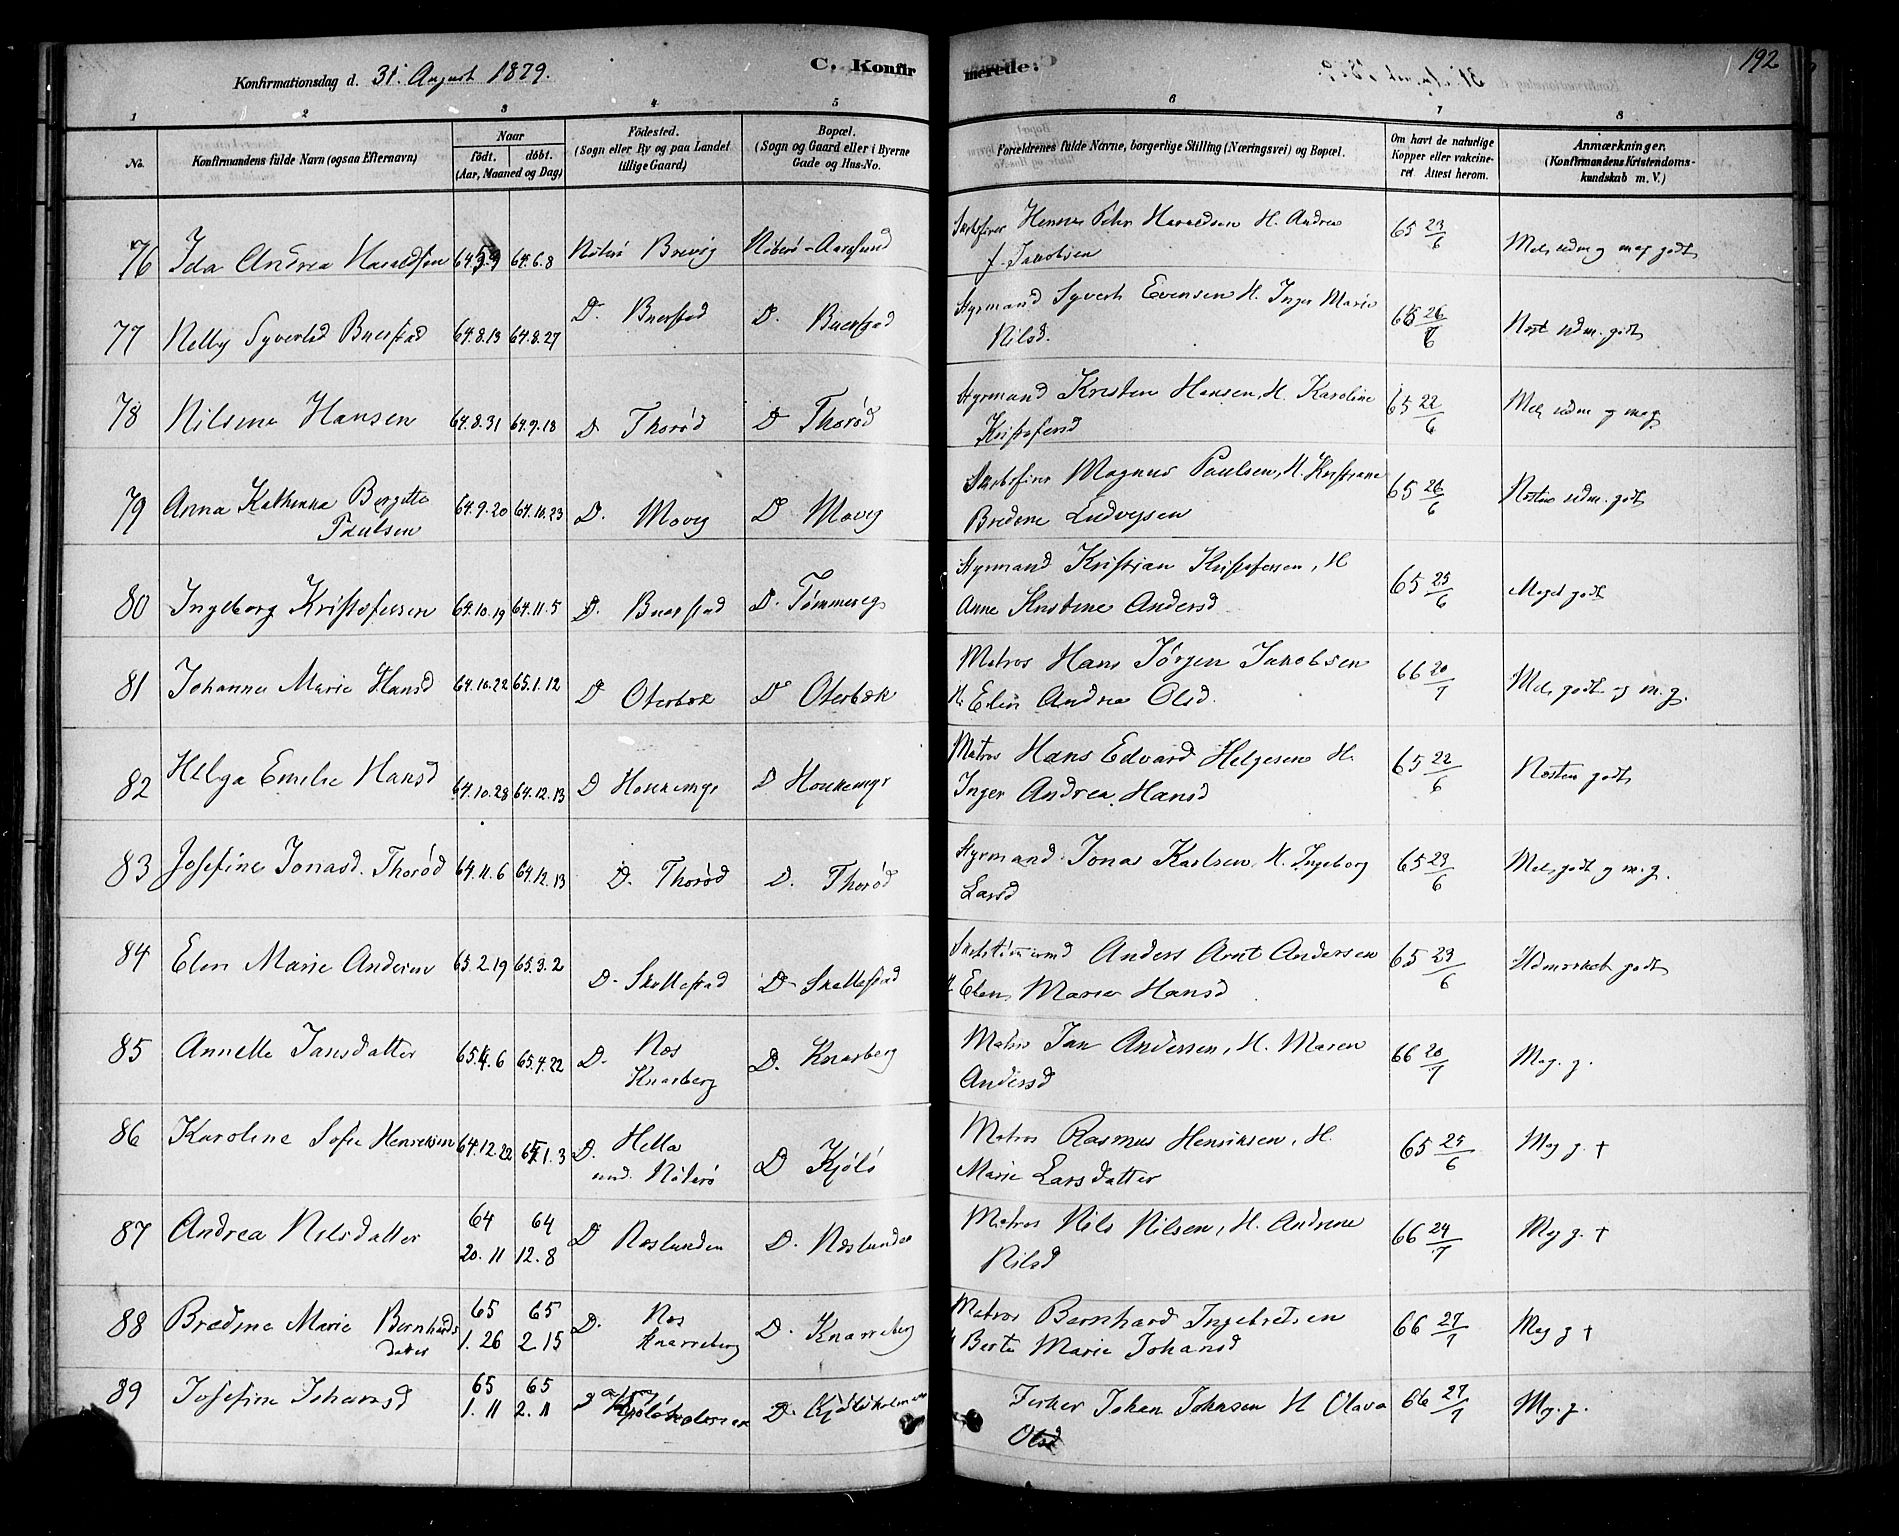 Konfirmationsdag d. 31. August 1879.
C. Konfir
merede:
192
1 2 3 4 5 6 7 8
No.
Konfirmandens fulde Navn (ogsaa Efternavn)
Naar
födt. döbt.
(Aar, Maaned og Dag)
Födested.
(Sogn eller By og paa Landet
tillige Gaard)
Bopæl.
(Sogn og Gaard eller i Byerne
Gade og Hus-No.
Forældrenes fulde Navne, borgerlige Stilling (Næringsvei) og Bopæl.
Om havt de naturlige
Kopper eller vakcine-
ret Attest herom.
Anmærkninger.
(Konfirmandens Kristendoms-
kundskab m. V.)
76 Ida Andrea Haraldsen 64.6.8 Nøterø Brevig Nøterø-Aarøsund
Andrea 65 23/6
f. Jakobsen Mel. udm og meg godt
77 Nelly Syvertsd Buerstad 64.8.13 64.8.27 D. Buerstad D. Buerstad
Styrmand Syvert Evensen H. Inger Marie 65 26/6 Næst udm. godt
Nilsd.
78 Nilsine Hansen 64.8.31 64.9.18 D Thorød D Thorød
Styrmand Kristen Hansen, H. Karoline 65 22/6 Mel udm og meg
Kristofersd
79 Anna Kathrina Bergitte 64.9.20 64.10.23 D. Movig D Movig
Paulsen
Magnus Paulsen, H. Kristiane 65 26/6 Næsten udm. godt
Bredine Ludvigsen
80 Ingeborg Kristofersen 64.10.19 64.11.5 D. Buerstad D. Tømmereg
Styrmand Kristian Kristofersen, H 65 25/6 Meget godt
Anne Kristine Andersd
81 Johanna Marie Hansd 64.10.22 65.1.12 D Oterbæk D Oterbæk
Matros Hans Jørgen Jakobsen 66 20/7 Mel. godt og m.g.
H. Elin Andrea Olsd.
82 Helga Emilie Hansd 64.10.28 64.12.13 D Houkemyr D Houkemyr
Matros Hans Edvard Helgesen H. 65 22/6 Næsten godt
Inger Andrea Hansd
83 Josefine Jonasd. Thorød 64.11.6 64.12.13 D. Thorød D. Thorød
Styrmand Jonas Karlsen, H. Ingeborg 65 23/6 Mel godt og m.g.
Larsd
84 Elen Marie Andersen 65.2.19 65.3.2 D. Skallestad D. Skallestad
Anders Arnt Andersen 65 23/6 Udmærket godt
H. Elen Marie Hansd
85 Annette Jansdatter 65.4.6 65.4.22 D. Næs D. Knarberg
Knarberg
Matros Jan Andersen, H. Maren 66 20/7 Meg. g.
Andersd
86 Karoline Sofie Henriksen 64.12.22 65.1.3 D. Hella D Kjøle
und. Nøterø
Matros Rasmus Henriksen, H. 65 25/6 Meg g. +
Marie Larsdatter
87 Andrea Nilsdatter 64 64 D Næslunden D. Næslunden
20.11 12.8
Matros Nils Nilsen, H. Andrine 66 24/7 Meg g. +
Nilsd
88 Bredine Marie Bernhards 65 65 D. Næs D. Knarreberg
datter 1.26 2.15 Knarreberg
Matros Bernhard Ingebretsen 66 27/7 Meg g +
H Berte Marie Johansd
89 Josefine Johansd 65 65 D Kjøløholmen D. Kjøløholmen
1.11 2.11
Fisker Johan Johnsen H Olava 66 27/7 Mg. g.
Olsd